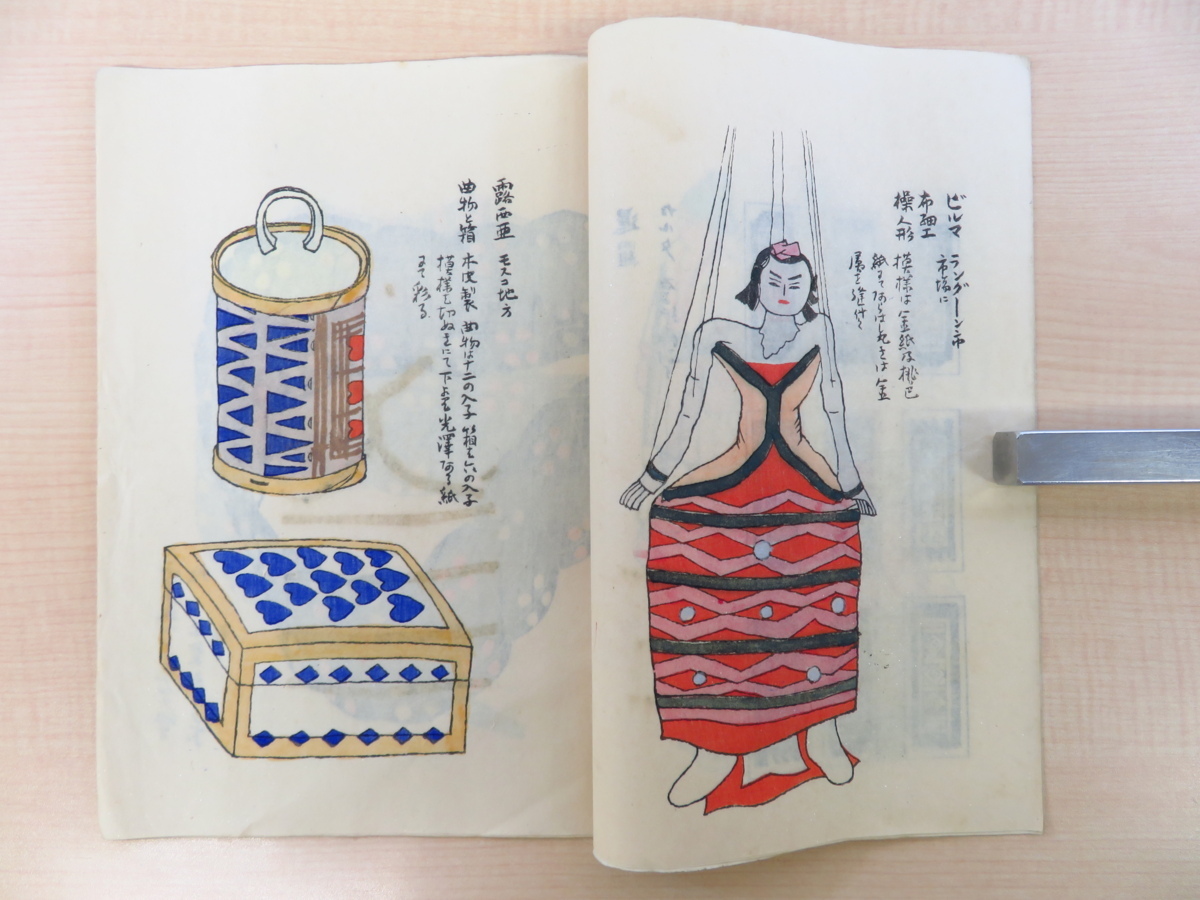 ビルマ ラングーン市
市場に
布細工
操人形
模様は金紙は桃色
紙にてあらはし丸きは金
属を縫付く
露西亜 モスコ地方
曲物と箱 木皮製 曲物は十二の入子 箱は六の入子
模様を切ぬきにて下より光澤ある紙
まで彩る